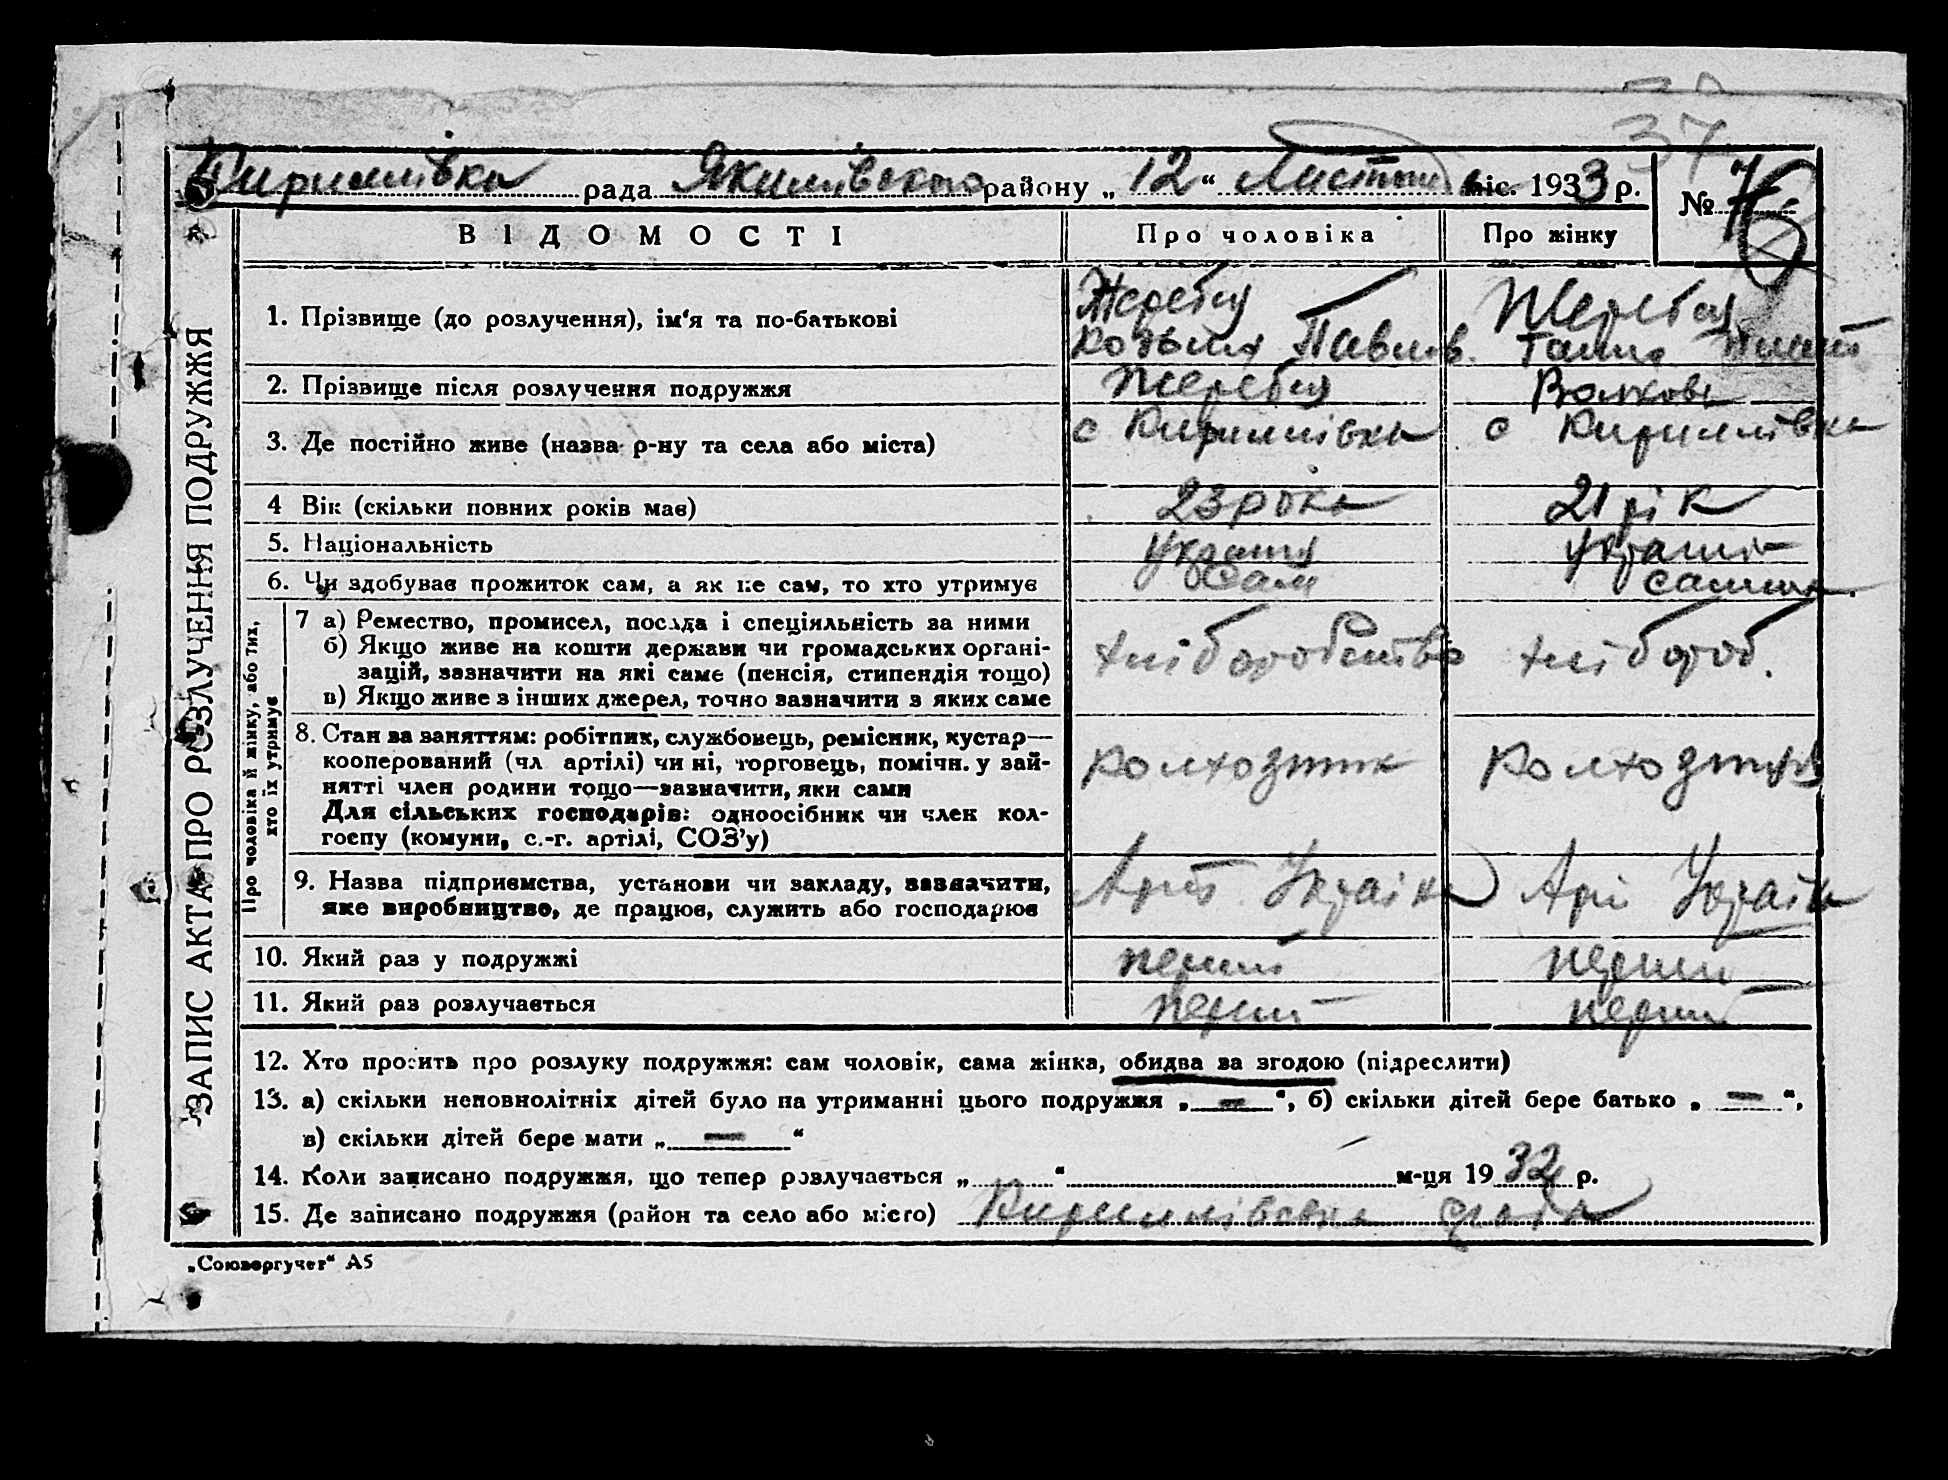 37
Кирилівка рада Якимівского району „12“ Листоп міс. 1933 р.
№
ЗАПИС АКТА ПРО РОЗЛУЧЕННЯ ПОДРУЖЖЯ
ВІДОМОСТІ Про чоловіка Про жінку
1. Прізвище (до розлучення), ім'я та по-батькові
Жеребця Жеребця
Козьма Павлов. Ганна
2. Прізвище після розлучення подружжя Жеребця Волкова
3. Де постійно живе (назва р-ну та села або міста) с Кирилівка с Кирилівка
4 Вік (скільки повних років має) 23 рока 21 рік
5. Національність
6. Чи здобуває прожиток сам, а як не сам, то хто утримує сам самма.
Про чоловіка й жінку, або тих,
хто їх утримує
7 а) Ремество, промисел, посада і спеціяльність за ними
б) Якщо живе на кошти держави чи громадських органі-
зацій, зазначити на які саме (пенсія, стипендія тощо)
в) Якщо живе з інших джерел, точно зазначити з яких саме
хліборобство хлібороб.
8. Стан за заняттям: робітник, службовець, ремісник, кустар—
кооперований (чл артілі) чи ні, торговець, помічн. у зай-
нятті член родини тощо—зазначити, яки сами
Для сільських господарів: одноосібник чи член кол-
госпу (комуни, с.-г. артілі, СОЗ'у)
колхозник
9. Назва підприємства, установи чи закладу, зазначити,
яке виробництво, де працює, служить або господарює
Арт Україна Арт Україна
10. Який раз у подружжі перший перший
11. Який раз розлучається перший перший
12. Хто просить про розлуку подружжя: сам чоловік, сама жінка, обидва за згодою (підреслити)
13. а) скільки неповнолітніх дітей було на утриманні цього подружжя „ — “, б) скільки дітей бере батько „ — “,
в) скільки дітей бере мати „ — “
14. Коли записано подружжя, що тепер розлучається „ “ м-ця 1932 р.
15. Де записано подружжя (район та село або місто) Кирилівська рада
„Союзоргучет“ А5